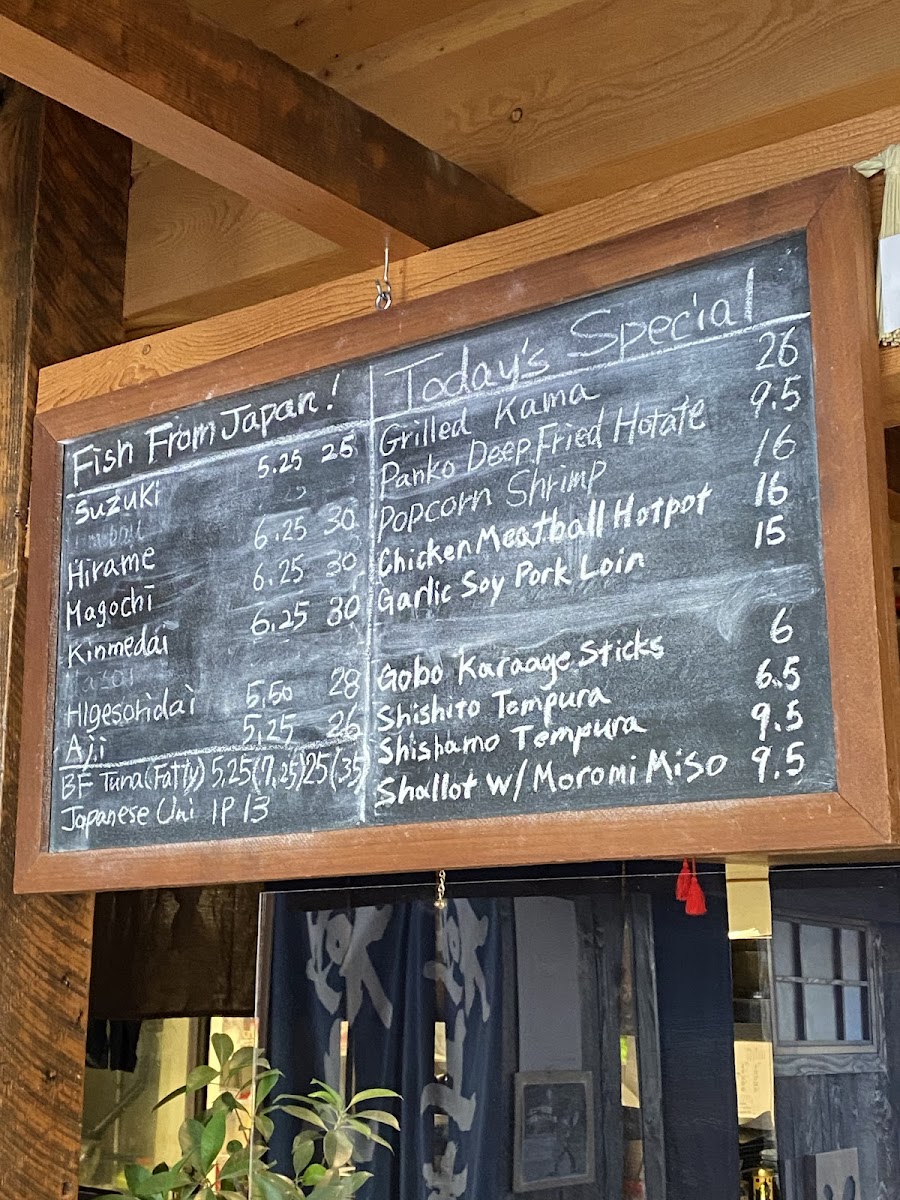 Fish From Japan!
Suzuki 5.25 25
Hirame 6.25 30
Magochi 6.25 30
Kinmedai 6.25 30
Higesoridai 5.50 28
Aji 5.25 26
BF Tuna(Fatty) 5.25(7.25)25(35)
Japanese Uni 1P 13
Today's Special
Grilled Kama 26
Panko Deep Fried Hotate 9.5
Popcorn Shrimp 16
Chicken Meatball Hotpot 16
Garlic Soy Pork Loin 15
Gobo Karaage Sticks 6
Shishito Tempura 6.5
Shishamo Tempura 9.5
Shallot w/Moromi Miso 9.5